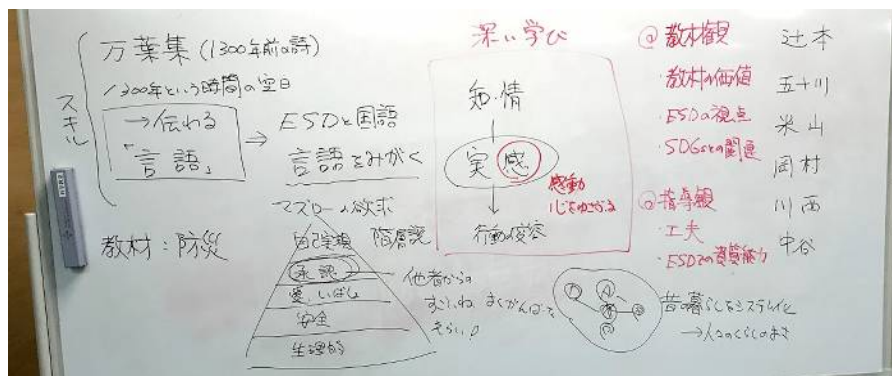 スキル
万葉集(1300年前の詩)
1300年という時間の空白
→伝わる
「言語」
⇒ ESDと国語
言語をみがく
教材:防災
マズローの欲求
階層説
自己実現
承認
愛
安全
生理的
他者からの
すごいね
えらい!
深い学び
知・情
実感
感動
心をゆさぶる
行動の変容
@教材観
・教材の価値
・ESDの視点
・SDGsとの関連
@指導観
・工夫
・ESDでの資質能力
辻本
五十川
米山
岡村
川西
中谷
昔の暮らし